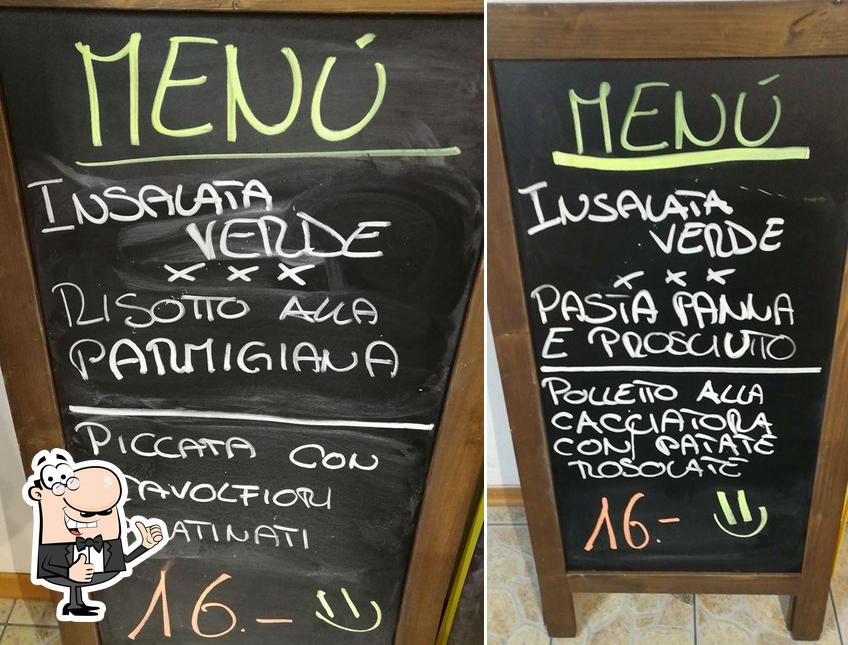 MENÚ
INSALATA
VERDE
x x x
RISOTTO ALLA
PARMIGIANA
PICCATA CON
CAVOLFIORI
GRATINATI
16.-
MENÚ
INSALATA
VERDE
x x x
PASTA PANNA
E PROSCIUTTO
POLLETTO ALLA
CACCIATORA
CON PATATE
ROSOLATE
16.-